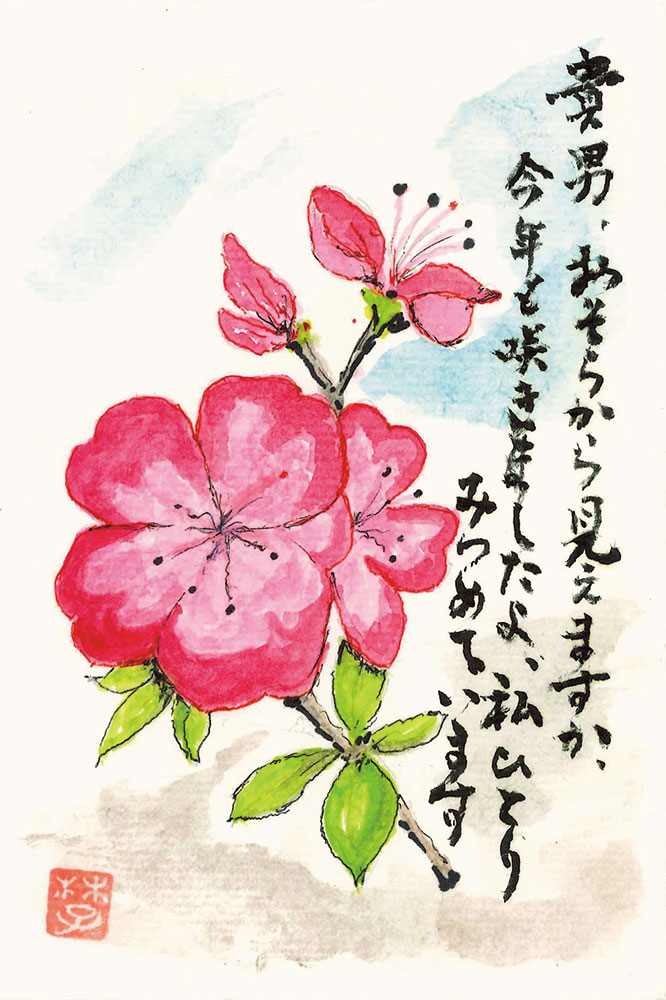 貴男、おそらから見えますか、
今年も咲きましたよ、私ひとり
みつめています